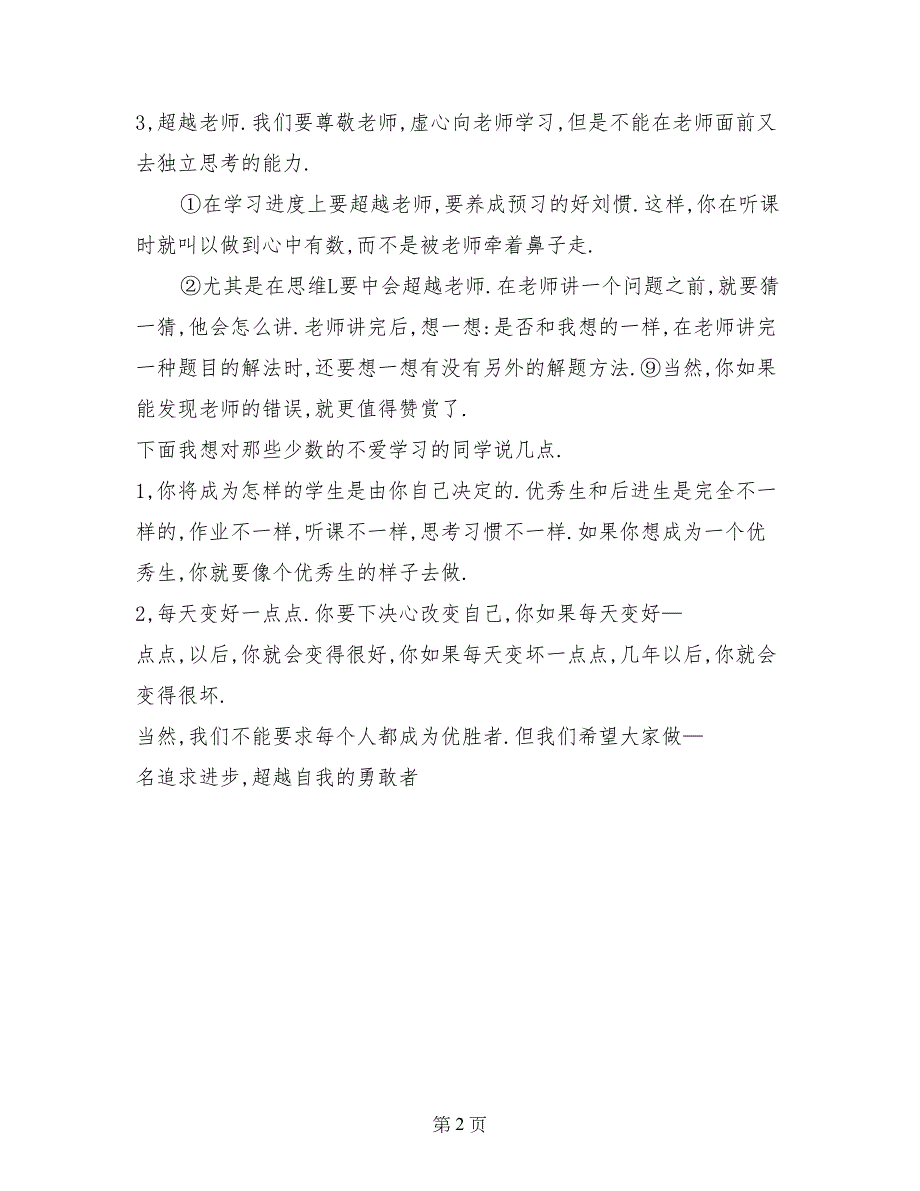 3,超越老师.我们要尊敬老师,虚心向老师学习,但是不能在老师面前又
去独立思考的能力.
①在学习进度上要超越老师,要养成预习的好刘惯.这样,你在听课
时就叫以做到心中有数,而不是被老师牵着鼻子走.
②尤其是在思维L要中会超越老师.在老师讲一个问题之前,就要猜
一猜,他会怎么讲.老师讲完后,想一想:是否和我想的一样,在老师讲完
一种题目的解法时,还要想一想有没有另外的解题方法.⑨当然,你如果
能发现老师的错误,就更值得赞赏了.
下面我想对那些少数的不爱学习的同学说几点.
1,你将成为怎样的学生是由你自己决定的.优秀生和后进生是完全不一
样的,作业不一样,听课不一样,思考习惯不一样.如果你想成为一个优
秀生,你就要像个优秀生的样子去做.
2,每天变好一点点.你要下决心改变自己,你如果每天变好—
点点,以后,你就会变得很好,你如果每天变坏一点点,几年以后,你就会
变得很坏.
当然,我们不能要求每个人都成为优胜者.但我们希望大家做—
名追求进步,超越自我的勇敢者
第 2 页